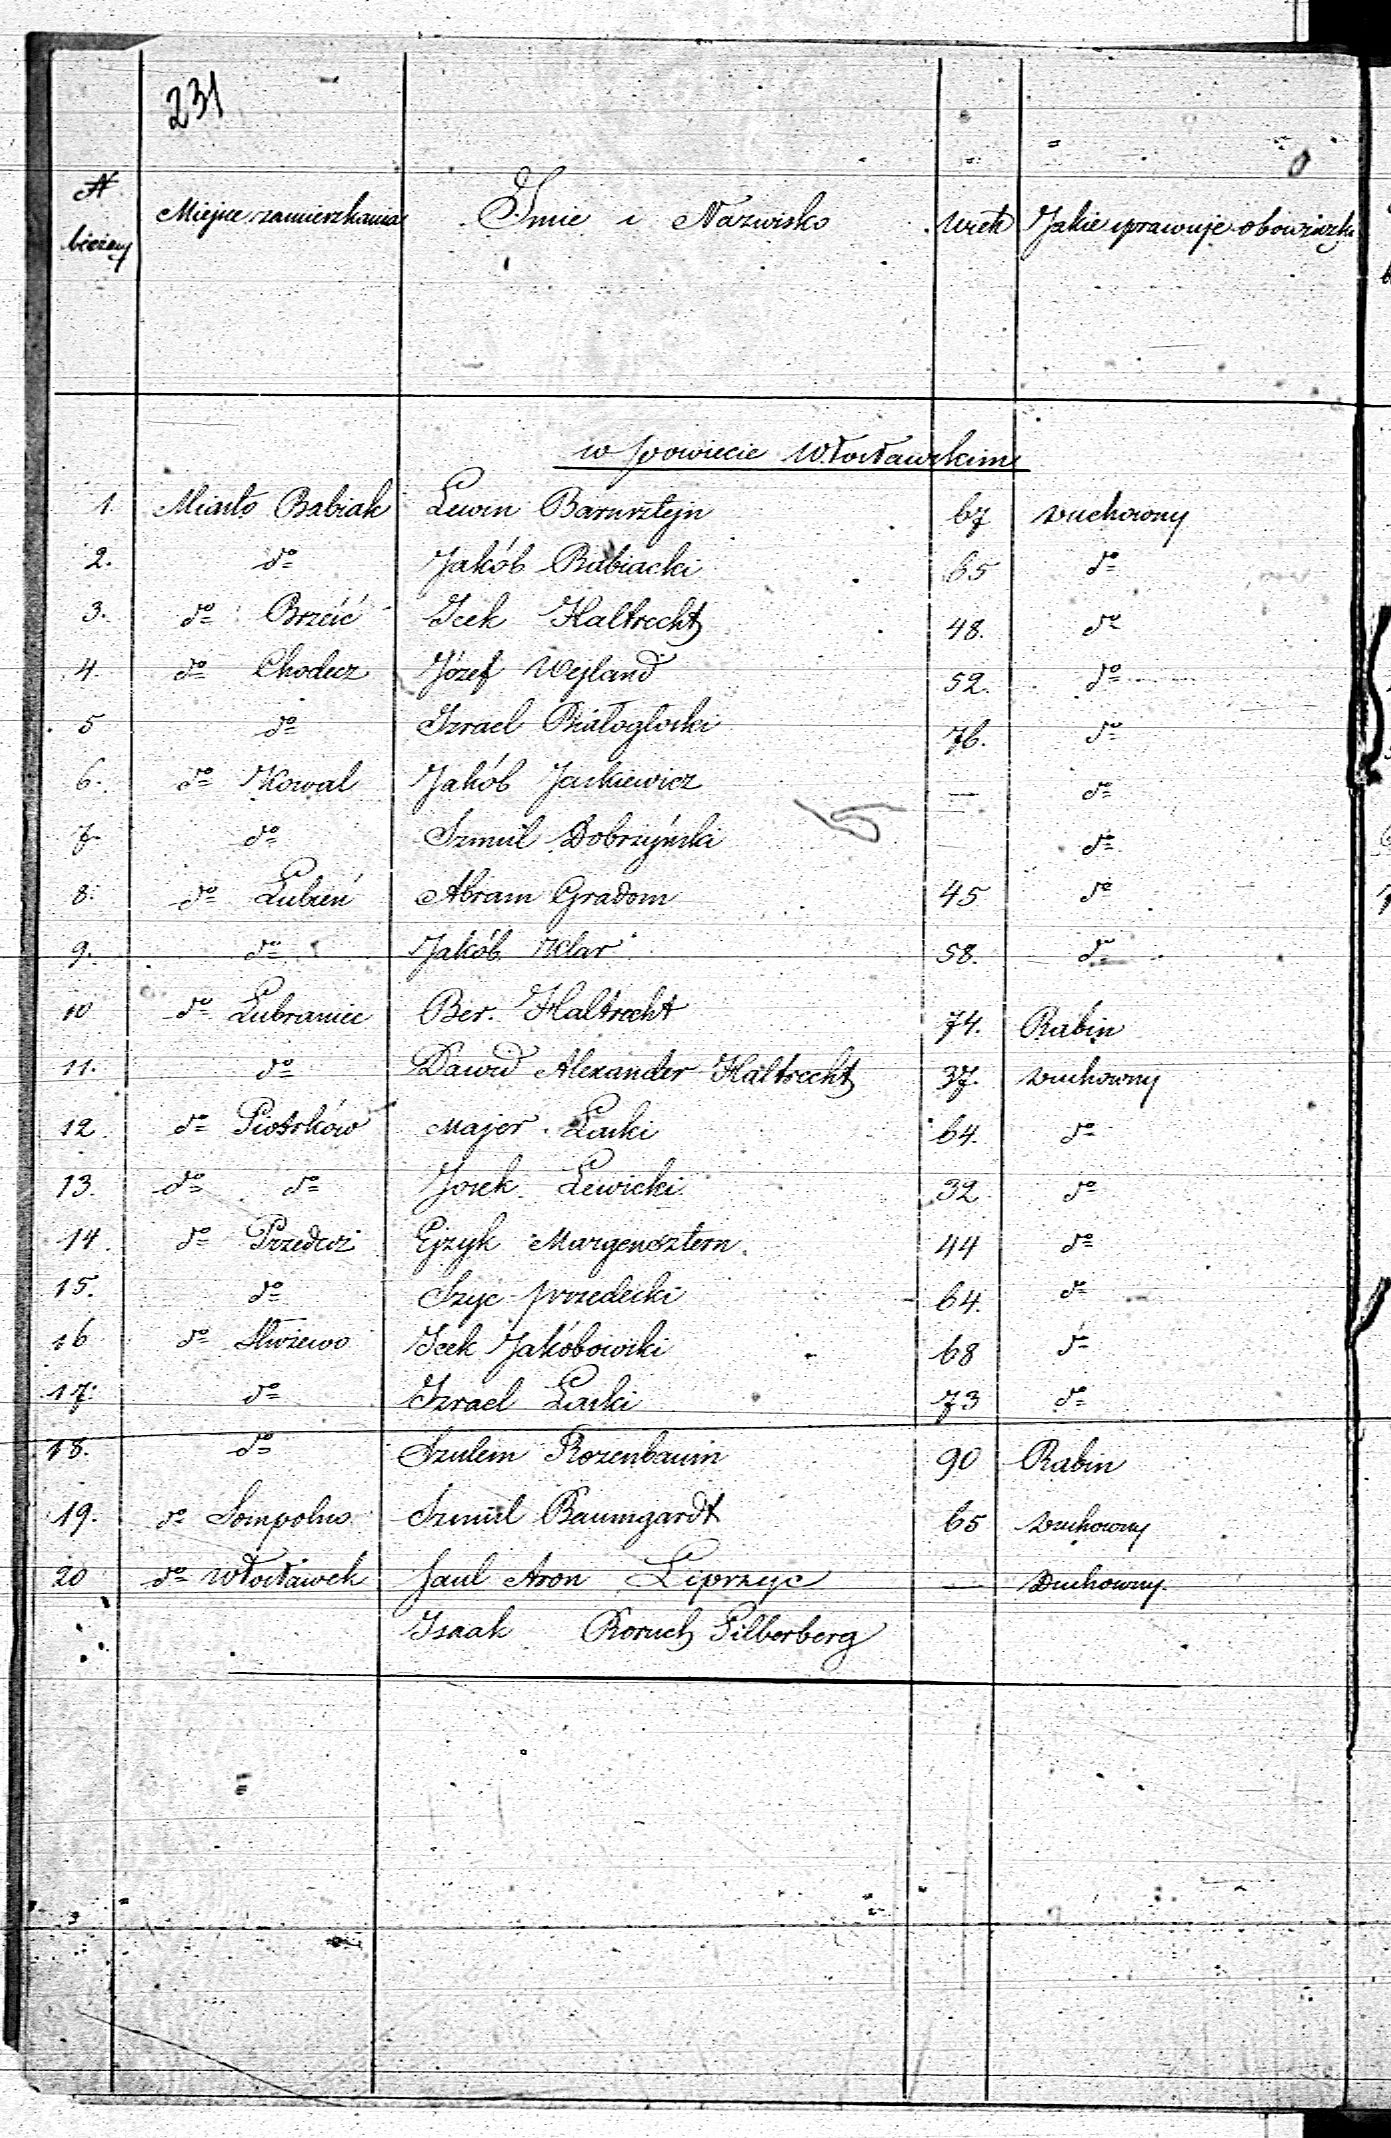 231
N bieżący Miejsce zamieszkania Imie i Nazwisko wiek Jakie sprawuje obowiązki
w powiecie Włocławskim
1. Miasto Babiak Lewin Barnsztejn 67 duchowny
2. do Jakób Babiacki 65 do
3. do Brześć Icek Haltrecht 48. do
4. do Chodecz Józef Wejland 52. do
5 do Izrael Białogloski 76. do
6. do Kowal Jakób Jaskiewicz — do
7. do Szmul Dobrzyński do
8. do Lubień Abram Gradom 45 do
9. do Jakób Klar 58. do
10 do Lubraniec Ber. Haltrecht 74. Rabin
11. do Dawid Alexander Haltrecht 37. duchowny
12 do Piotrków Majer Laski 64. do
13. do do Josek Lewicki 32 do
14 do Przedecz Ejzyk Margensztern 44 do
15. do Szyc przedecki 64. do
16 do Służewo Icek Jakóbowski 68 do
17. do Izrael Laski 73 do
18. do Szulem Rozenbaum 90 Rabin
19. do Sompolno Szmul Baumgardt 65 duchowny
20 do Włocławek Saul Aron Lipszyc — Duchowny.
Isaak Boruch Silberberg